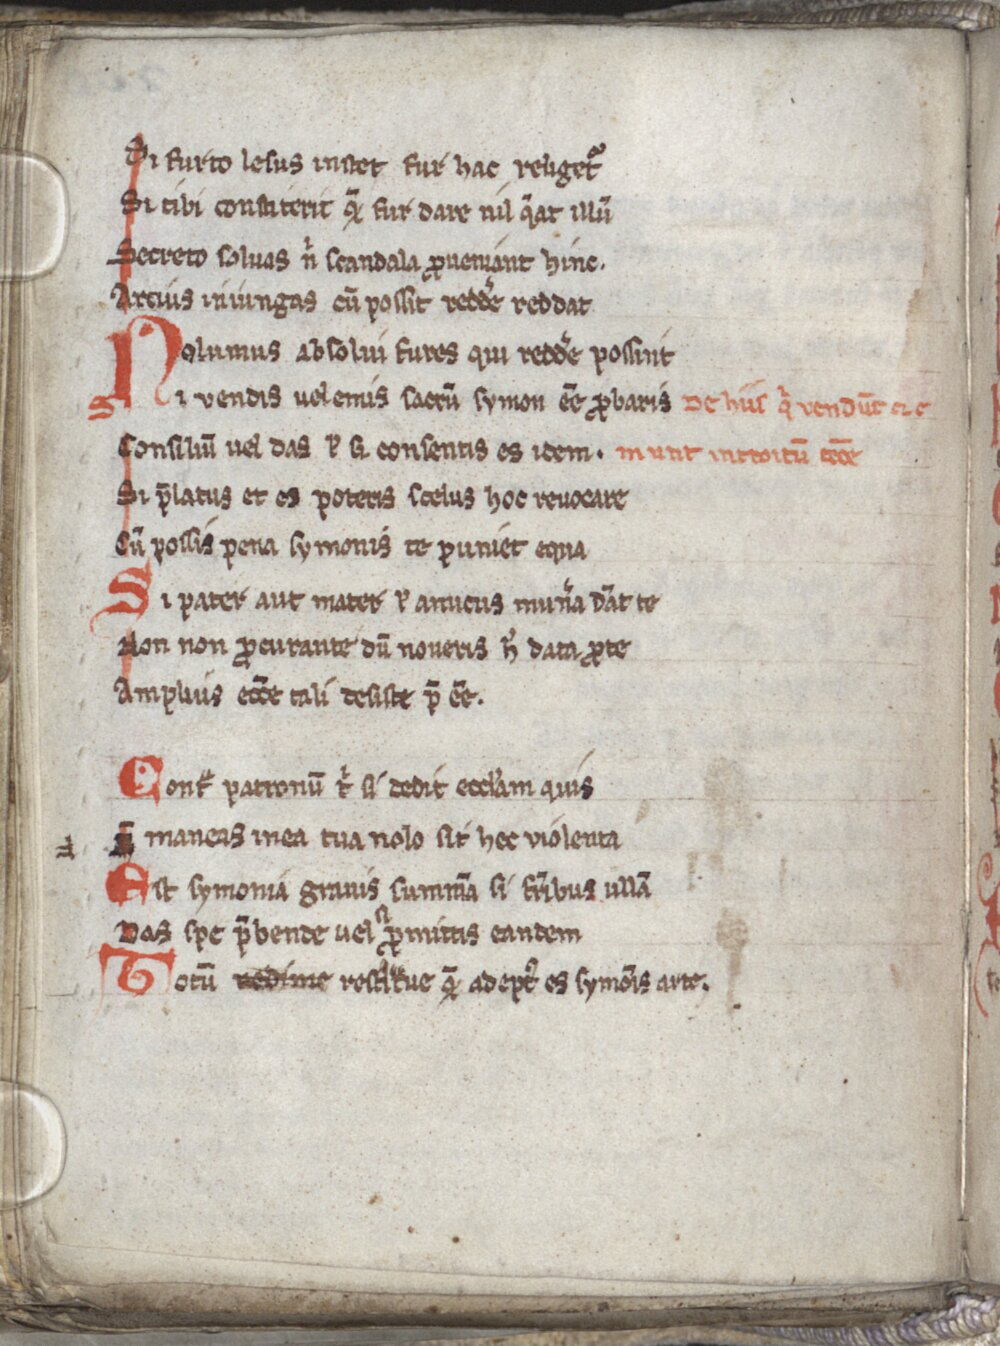 Si furto lesus instet fur hac religetᷣ
Si tibi constiterit qđ fur dare nil q̄at illū
Secreto soluas ñ scandala ꝓueniant hinc.
Arcius iniungas cū possit reddͤe reddat
Nolumus absolui fures qui reddͤe possint
Si vendis uel emis sacrū symon eē̄ ꝓbaris De hiis q̇ vendūt ⁊ e
Consiliū uel das ⁊ si consentis es idem. munt introitū ecc̄e
Si p̄latus et es poteris scelus hoc reuocare
Cū possis pena symonis te puniet equa
Si pater aut mater ⁊ amicus mun̄a dāt te
Non non ꝓcurante dū noueris h̄ data ꝓ te
Amplius ecc̄e tali desiste p̄eē̄.
Cont͛ patronū si dedit ecc̄lam quis
maneas in ea tua nolo sit hec violenta
Est symonia grauis summā si fr̄ibus ullā
Das spe p̄bende uel si ꝓmittis eandem
Totū restitue qđ adept͛ es symōis arte.